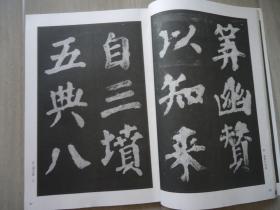 筭幽賛
以知来
自三墳
五典八